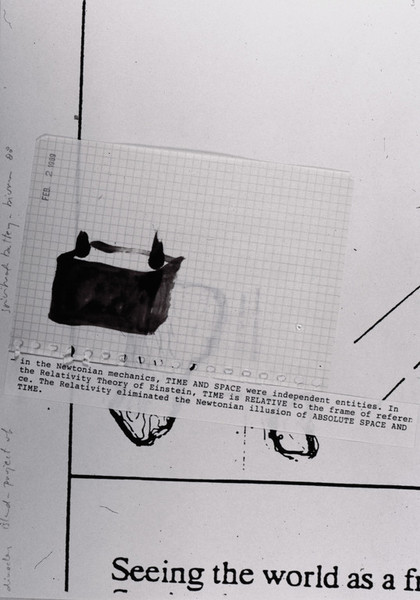 FEB. 2 1989
in the Newtonian mechanics, TIME AND SPACE were independent entities. In
the Relativity Theory of Einstein, TIME is RELATIVE to the frame of referen
ce. The Relativity eliminated the Newtonian illusion of ABSOLUTE SPACE AND
TIME.
Seeing the world as a fr